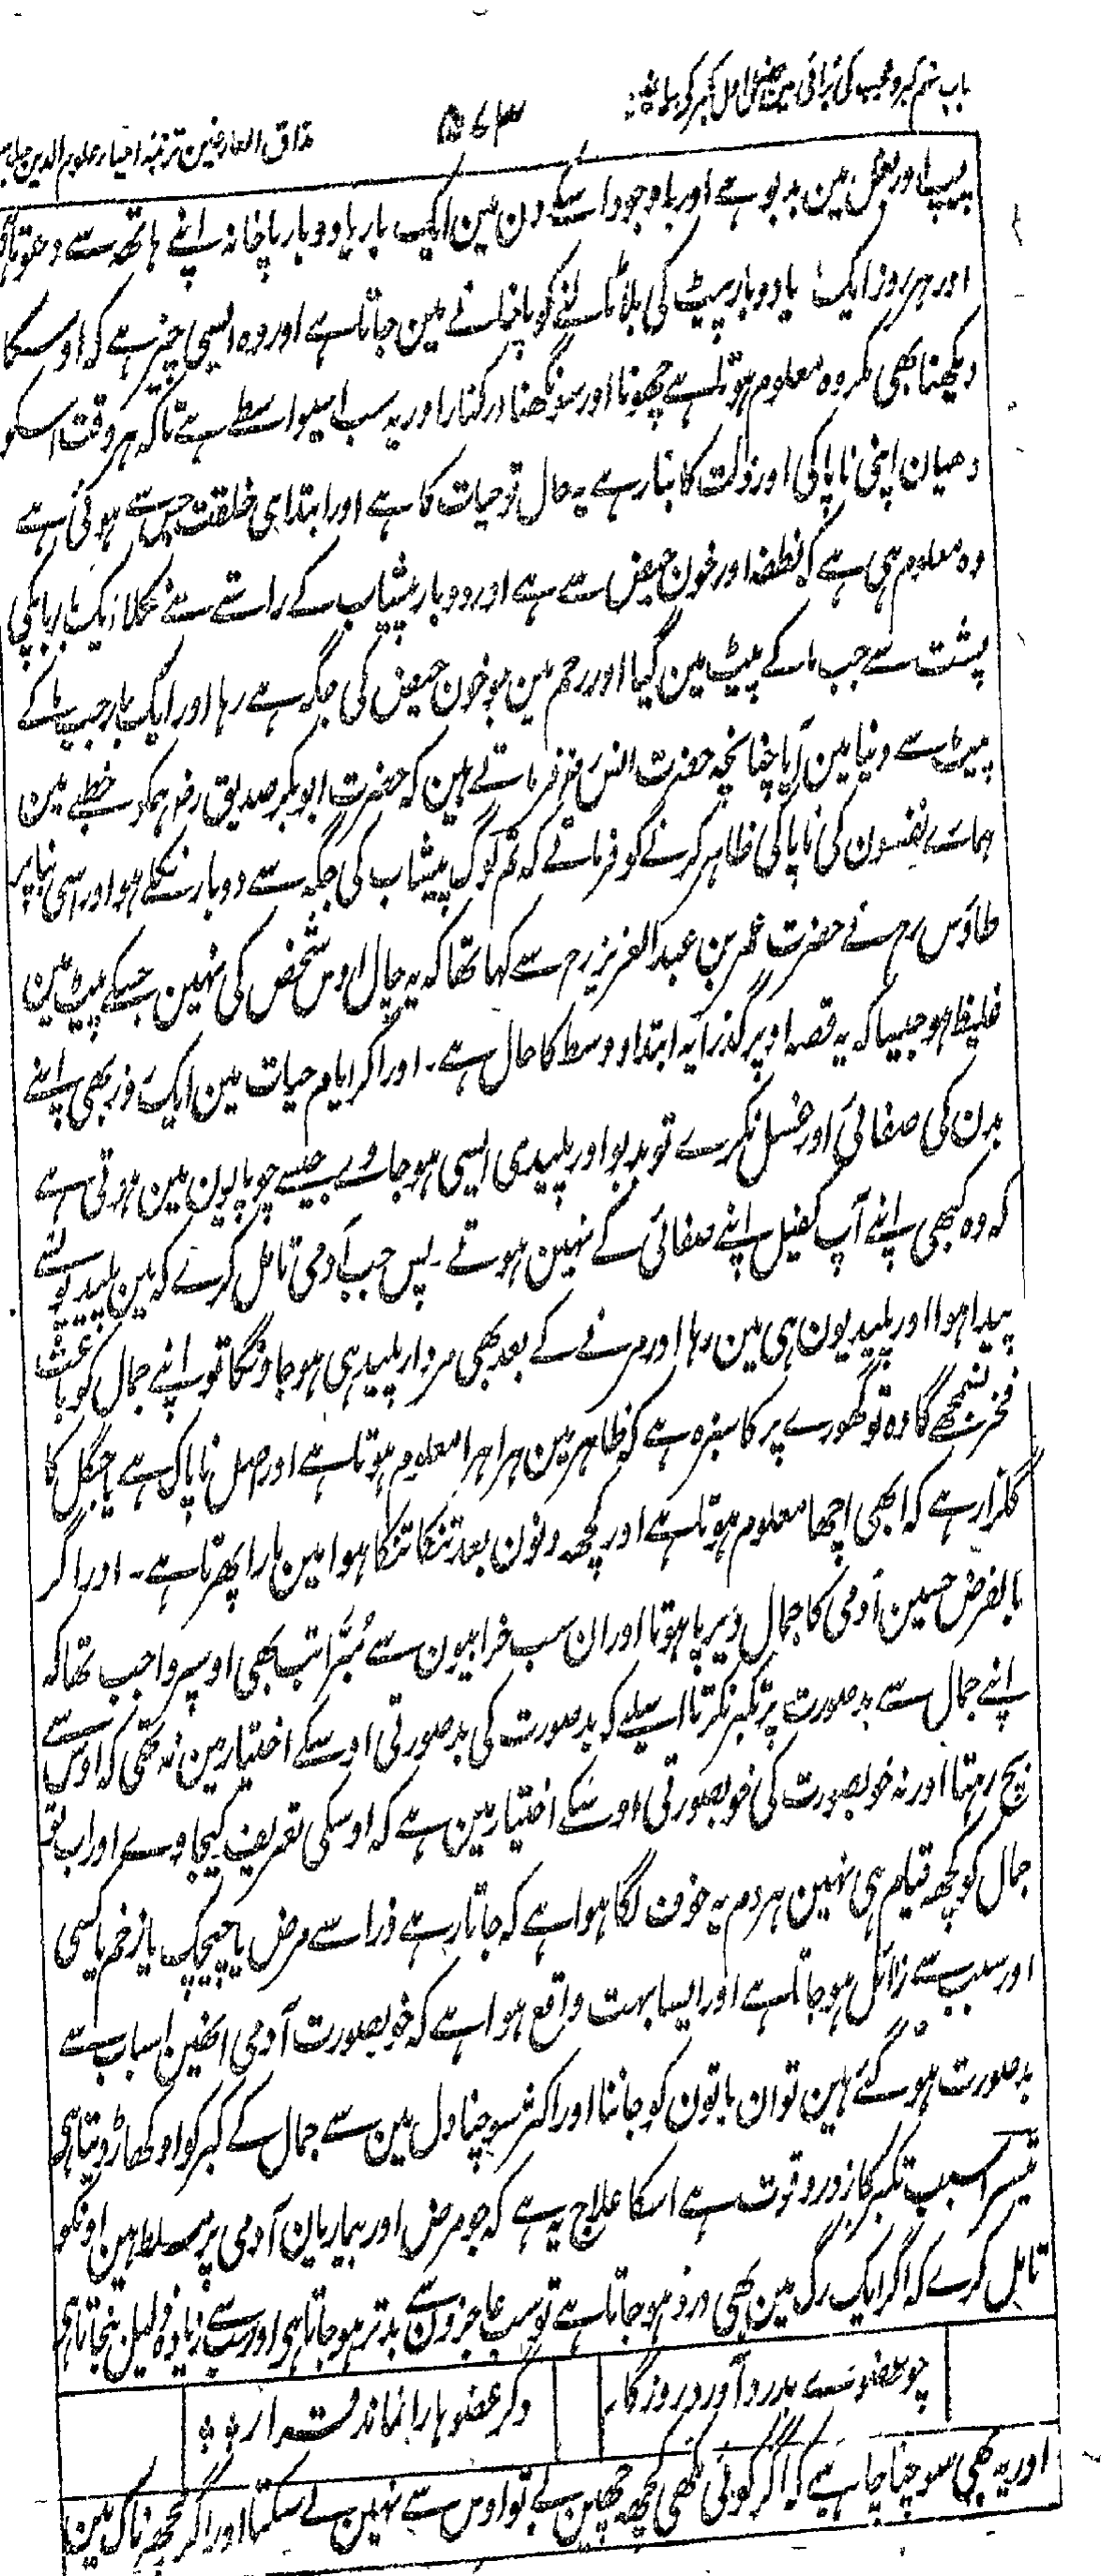 باب نہم کبر و عجب کی برائی مین
۵۶۳
مذاق العارفین ترجمہ احیاء علوم الدین جلد
پیپ اور بغل مین بدبو ہے اور باوجود اسکے دن مین ایک بار یا دو بار پاخانہ اپنے ہاتھ سے دھوتا ہے
اور ہر روز ایک یا دو بار پیٹ کی بلا ٹالنے کو پاخانے مین جاتا ہے اور وہ ایسی چیز ہے کہ اوسکا
دیکھنا بھی مکروہ معلوم ہوتا ہے چھونا اور سونگھنا درکنار اور یہ سب اسیواسطے ہے تاکہ ہر وقت اسکو
دھیان اپنی ناپاکی اور ذلت کا بنا رہے یہ حال تو حیات کا ہے اور ابتدا ہی خلقت جس سے ہوئی ہے
وہ معلوم ہی ہے کہ نطفہ اور خون حیض سے ہے اور دو بار پیشاب کے راستے سے نکلا ایک بار باپ کی
پشت سے جب ما کے پیٹ مین گیا اور رحم مین جو خون حیض کی جگہ ہے رہا اور ایک بار جب ما کے
پیٹ سے دنیا مین آیا چنانچہ حضرت انس رض فرماتے ہین کہ حضرت ابو بکر صدیق رض ہمکو خطبے مین
ہمارے نفسون کی ناپاکی ظاہر کرنے کو فرماتے کہ تم لوگ پیشاب کی جگہ سے دو بار نکلے ہو اور اسی بنا پر
طاؤس رح نے حضرت عمر بن عبد العزیز رح سے کہا تھا کہ یہ چال اوس شخص کی نہین جسکے پیٹ مین
غلیظ ہو جیسا کہ یہ قصہ اوپر گذرا یہ ابتدا و وسط کا حال ہے۔ اور اگر ایام حیات مین ایک روز بھی اپنے
بدن کی صفائی اور غسل نکرے تو بدبو اور پلیدی ایسی ہو جاوے جیسے چوپایون مین ہوتی ہے
کہ وہ کبھی اپنے آپ کفیل اپنے صفائی کے نہین ہوتے۔ پس جب آدمی تامل کرے کہ مین پلیدیونسے
پیدا ہوا اور پلیدیون ہی مین رہا اور مرنے کے بعد بھی مردار پلید ہی ہو جاونگا تو اپنے جمال کو باعث
فخر نسمجھے گا وہ تو گھورے پر کا سبزہ ہے کہ ظاہر مین ہرا ہرا معلوم ہوتا ہے اور اصل ناپاک ہے یا جنگل کا
گلزار ہے کہ ابھی اچھا معلوم ہوتا ہے اور کچھ دنون بعد تنکا تنکا ہوا مین مارا پھرتا ہے۔ اور اگر
بالفرض حسین آدمی کا جمال دیرپا ہوتا اور ان سب خرابیون سے مبرا تب بھی اوسپر واجب تھا کہ
اپنے جمال سے بد صورت پر تکبر نکرتا اسلیے کہ بد صورت کی بد صورتی اوسکے اختیار مین نہ تھی کہ اوس سے
بچ رہتا اور نہ خوبصورت کی خوبصورتی اوسکے اختیار مین ہے کہ اوسکی تعریف کیجاوے اور اب تو
جمال کو کچھ قیام ہی نہین ہر دم یہ خوف لگا ہوا ہے کہ جاتا رہے ذرا سے مرض یا چیچک یا زخم یا کسی
اور سبب سے زائل ہو جاتا ہے اور ایسا بہت واقع ہوا ہے کہ خوبصورت آدمی انھین اسباب سے
بد صورت ہو گئے ہین تو ان باتون کو جاننا اور اکثر سوچنا دل مین سے جمال کے کبر کو اوکھاڑ دیتا ہی
تیسرا سبب تکبر کا زور و قوت ہے اسکا علاج یہ ہے کہ جو مرض اور بیماریان آدمی پر مسلط ہین اونکو
تامل کرے کہ اگر ایک رگ مین بھی درد ہو جاتا ہے تو سب عاجزون سے بدتر ہو جاتا ہی اور سب سے زیادہ ذلیل بنجاتا ہی
چو عضوے بدرد آورد روزگار
دگر عضوہا را نماند قرار
اور یہ بھی سوچنا چاہیے کہ اگر کوئی مکھی کچھ چھین لے تو اوس سے نہین لے سکتا اور اگر مچھر ناک مین